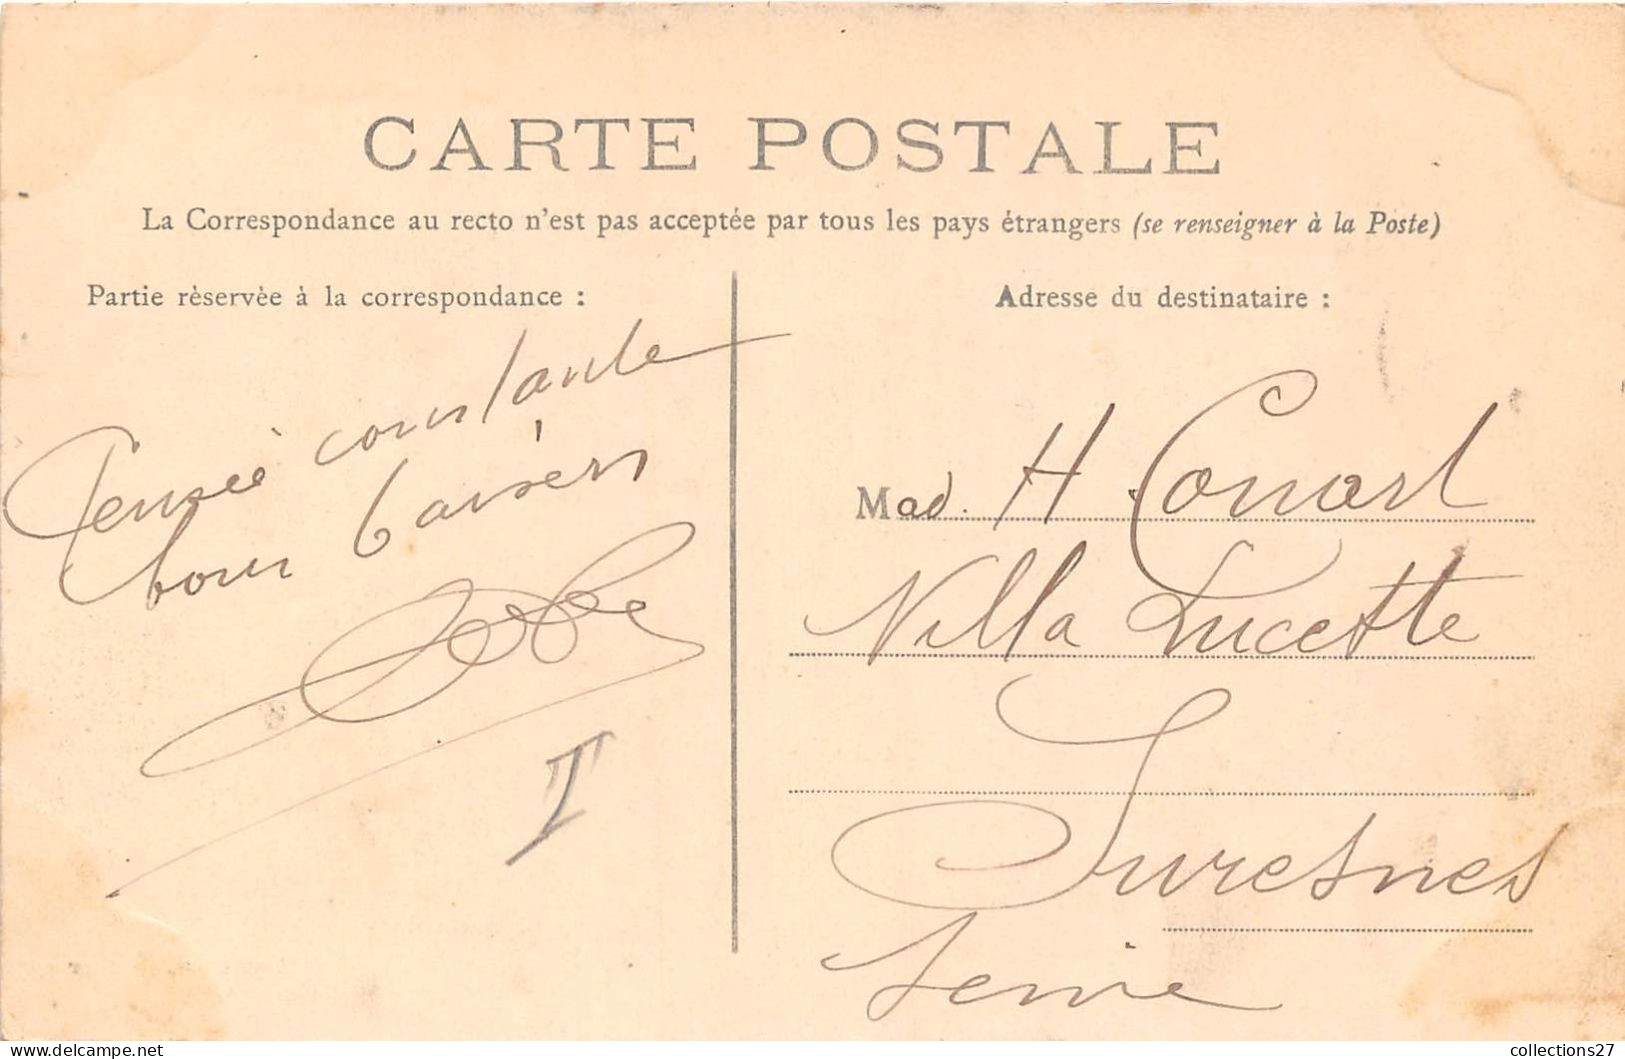 CARTE POSTALE
La Correspondance au recto n'est pas acceptée par tous les pays étrangers (se renseigner à la Poste)
Partie rèservèe à la correspondance :
Pensée constante
bons baisers
Adresse du destinataire :
Mad. H Conart
Villa Lucette
Suresnes
Seine
I
collections27